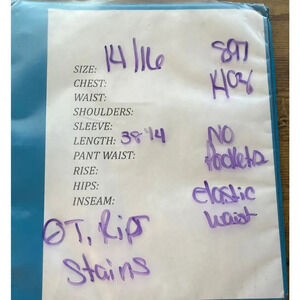 SIZE: 14/16
897
CHEST:
1408
WAIST:
SHOULDERS:
SLEEVE:
LENGTH: 38 1/4
NO
PANT WAIST:
Pockets
RISE:
HIPS:
elastic
INSEAM:
waist
ØT, Rips
Stains